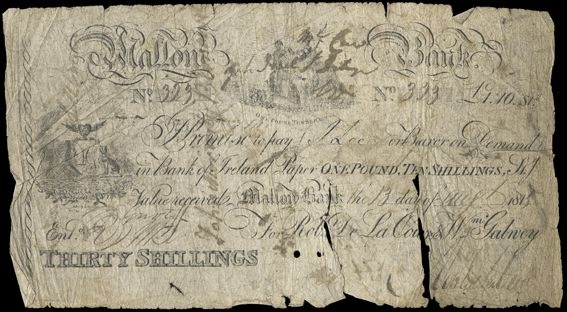 Mallow Bank
No. 323 No. 323 £1.10. St.
ONE POUND TEN SHS.
I Promise to pay or Bearer on Demand
in Bank of Ireland Paper ONE POUND, TEN SHILLINGS, St.g
Value received Mallow Bank the 13 day of 181
Ent. For Robt. De La Cour & Wm. Galwey
THIRTY SHILLINGS